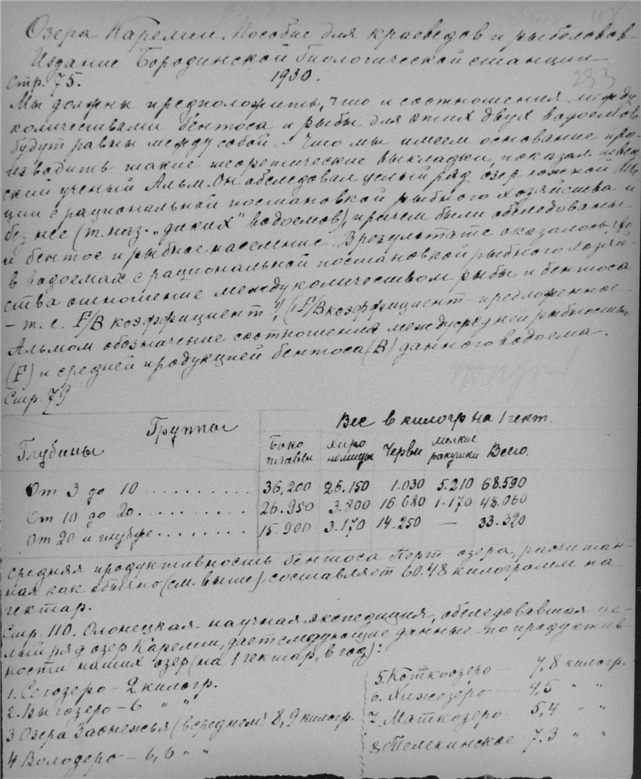 Озера Карелии. Пособие для краеведов и рыболовов
Издание Бородинской биологической станции
Стр. 75. 1930.
Мы должны предположить, что и соотношения между
количествами бентоса и рыбы для этих двух водоемов
будут равны между собой. Что мы имеем основание про
изводить такие теоретические выкладки, показал швед
ский ученый Альм. Он обследовал целый ряд озер южной Шве
ции с рациональной постановкой рыбного хозяйства и
без нее (т. наз. „диких" водоемов), причем были обследованы
и бентос и рыбное население. В результате оказалось, что
в водоемах с рациональной постановкой рыбного хозяй
ства отношение между количеством рыбы и бентоса
– т. е. F/B коэффициент", (F/B коэффициент предложенное
Альмом обозначение соотношения между средней рыбностью
(F) и средней продукцией бентоса (B) данного водоема.
Стр. 79
Группы Вес в килогр на 1 гект.
Глубины Боко плаввы Хиро номиды Черви мелкие ракушки Всего.
От 3 до 10 36,200 26.150 1.030 5.210 68.590
От 10 до 20 26.950 3.800 16.680 1.170 48.060
От 20 и глубже 15.900 3.170 14.250 — 33.320
средняя продуктивность бентоса Корт озера, расчитан-
ная как обычно (см. выше) составляет 60.48 килограмм на
гектар.
Стр. 110. Олонецкая научная экспедиция, обследовавшая це-
лый ряд озер Карелии, дает следующие данные по продуктив-
ности наших озер (на 1 гектар, в год):
1. Сегозеро – 2 килогр.
2. Выгозеро – 6 " "
3 Озера Заонежья (в среднем) 8,9 килогр.
4 Володеро – 6,6 " "
5. Коткоозеро 7,8 килогр.
6. Хижозеро 4,5 " "
7. Маткозеро 5,4 " "
8. Телекинское 7,3 " "